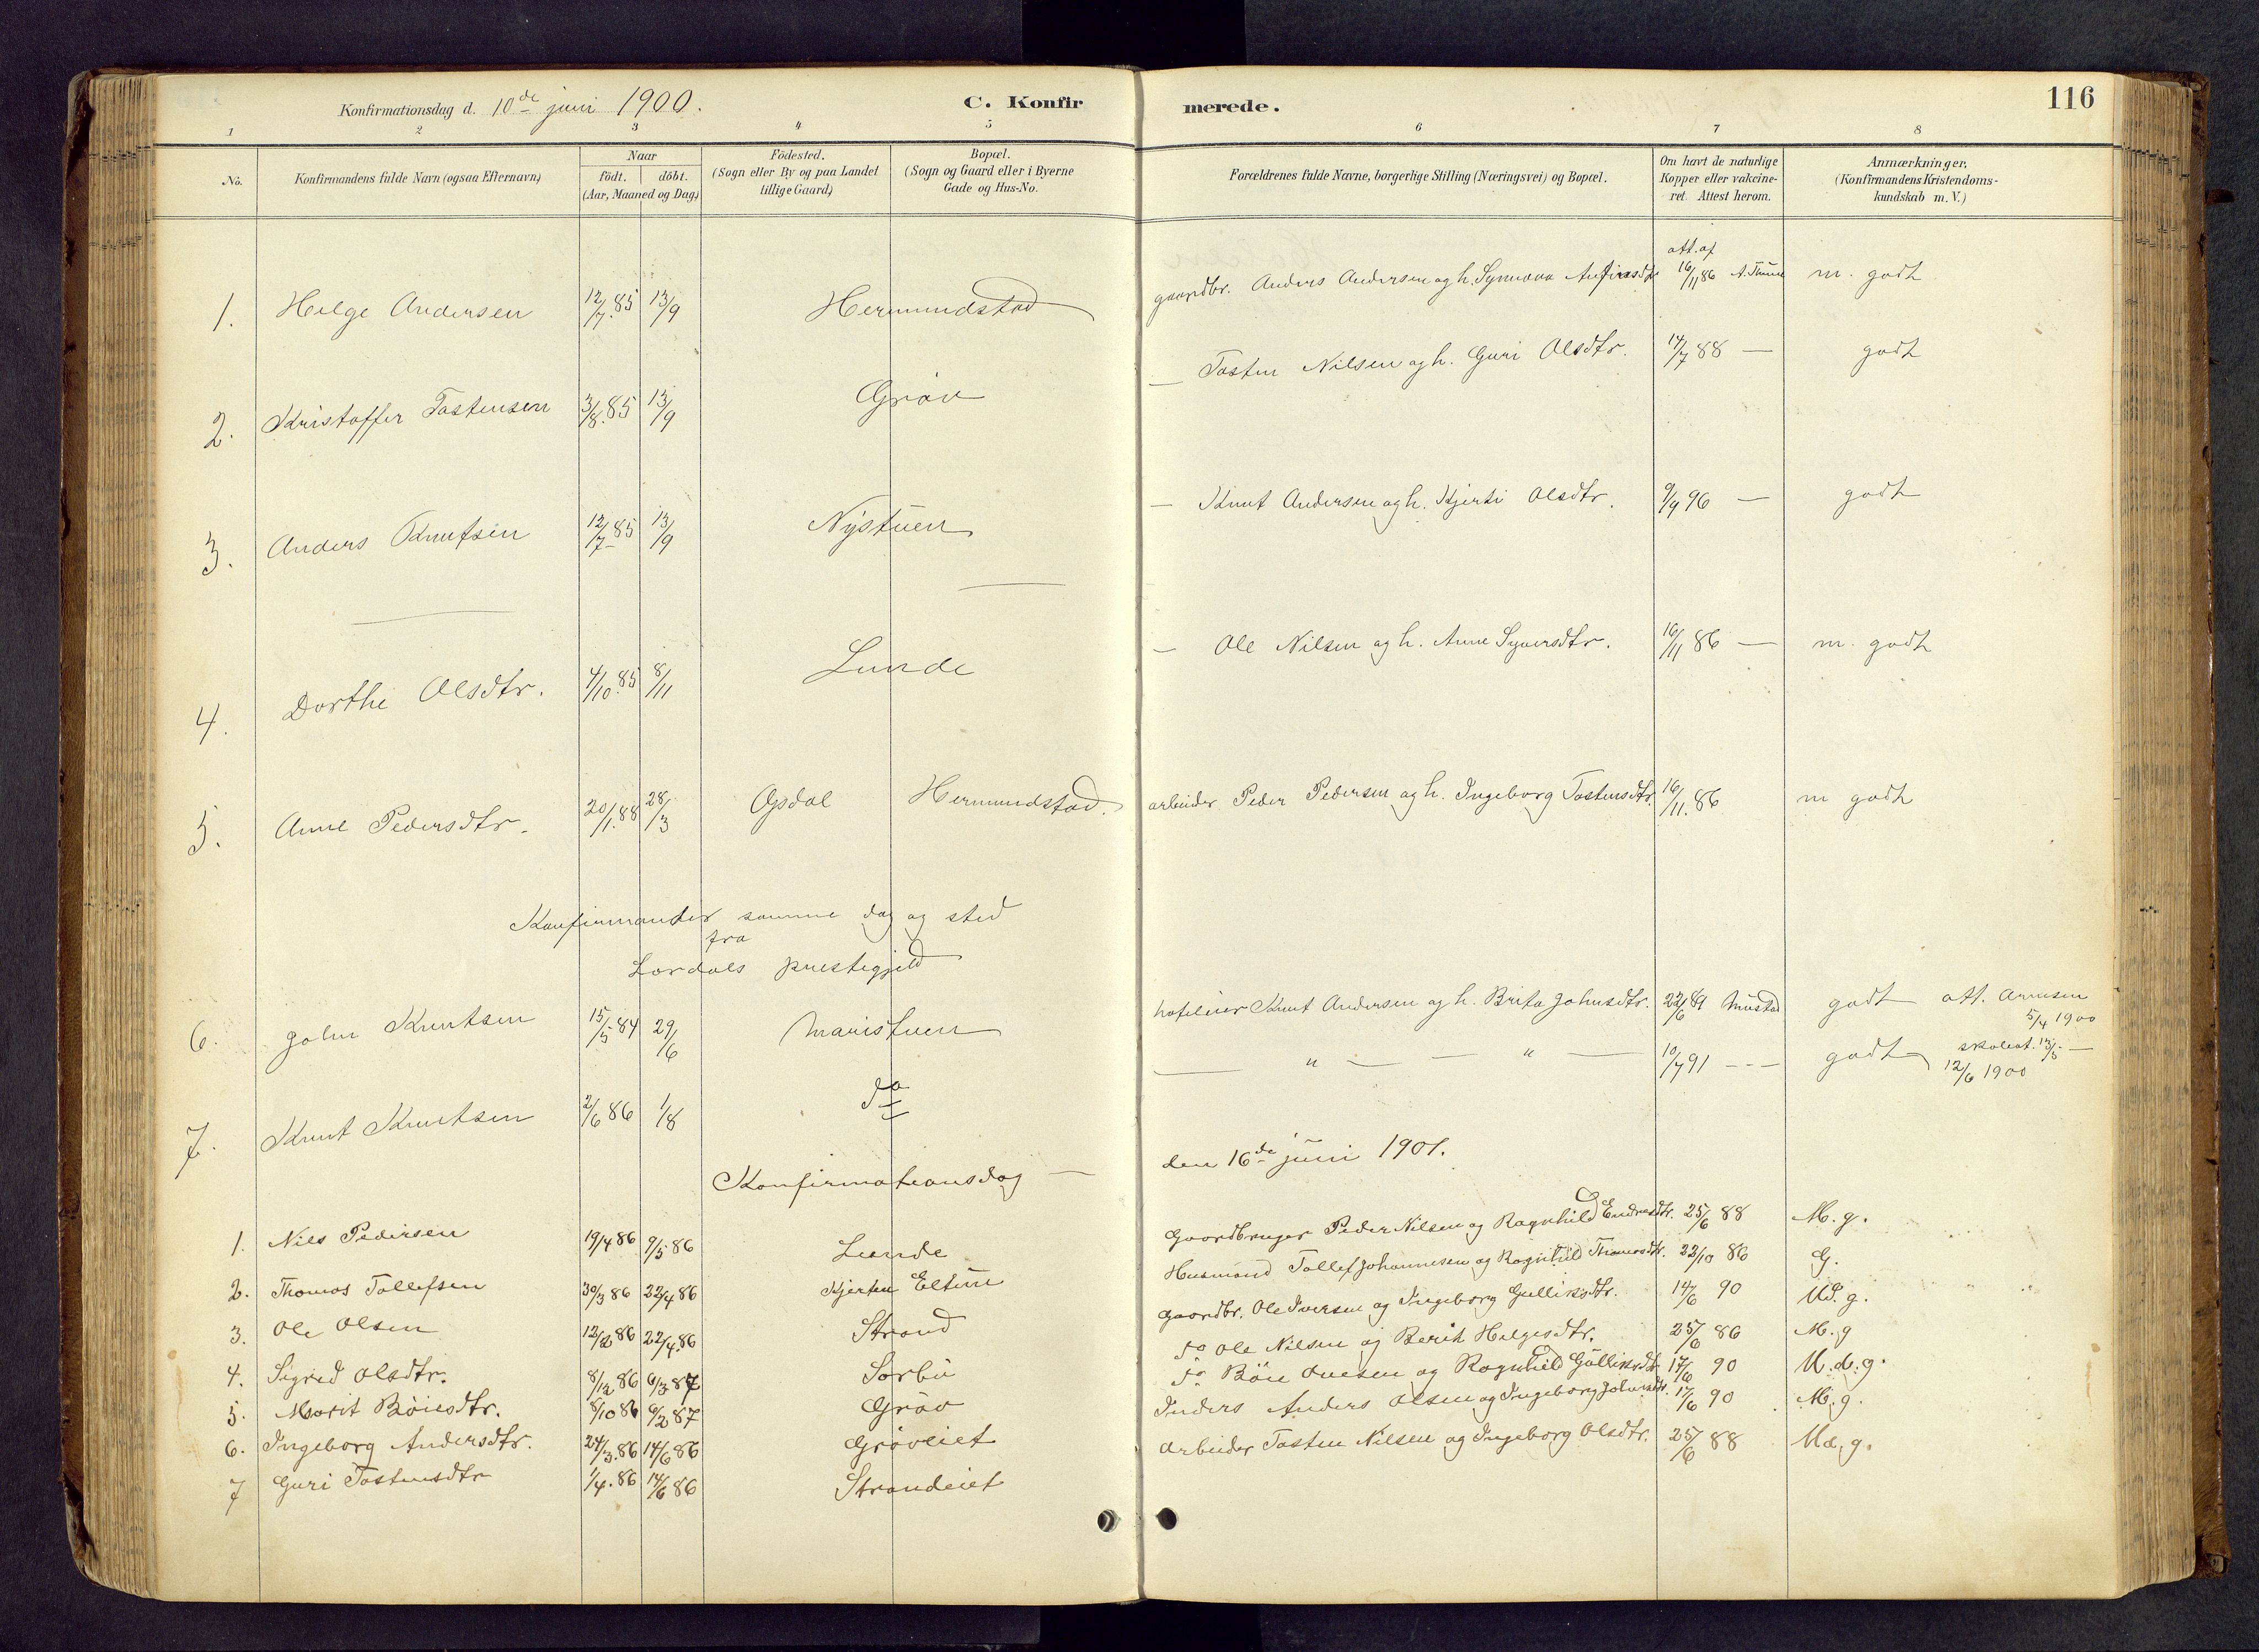 Konfirmationsdag d. 10de juni 1900. C. Konfirmerede. 116
1 2 3 4 5 6 7 8
No. Konfirmandens fulde Navn (ogsaa Efternavn) Naar födt. döbt. (Aar, Maaned og Dag) Födested. (Sogn eller By og paa Landet tillige Gaard) Bopæl. (Sogn og Gaard eller i Byerne Gade og Hus-No. Forældrenes fulde Navne, borgerlige Stilling (Næringsvei) og Bopæl. Om havt de naturlige Kopper eller vakcineret. Attest herom. Anmærkninger. (Konfirmandens Kristendomskundskab m. V.)
1. Helge Andersen 12/7.85 13/9 Hermundstad gaardbr. Anders Andersen og h. Synnøva att. af 16/11 86 m. godt
2. Kristoffer Tostensen 3/8.85 13/9 Grøv — Tosten Nilsen og h. Guri Olsdtr. 14/7 88 — godt
3. Anders Knutsen 12/7 85 13/9 Nystuen — Knut Andersen og h. Kjersti Olsdtr. 9/9 96 — godt
4. Dorthe Olsdtr. 4/10.85 8/11 Lunde — Ole Nilsen og h. Anne Syversdtr. 16/11 86 — m. godt
5. Anne Pedersdtr. 20/1.88 28/3 Opdal Hermundstad. arbeider Peder Pedersen og h. Ingeborg Tostensdtr. 16/11.86 m godt
Konfirmanter samme dag og sted
fra
Lærdals prestegjeld
6. John Knutsen 15/5 84 29/6 Maristuen hoteleier Knut Andersen og h. Brita Johnsdtr. 22/6 89 Mustad godt att. Arnesen 5/4 1900
7. Knut Knutsen 2/6 86 1/8 do — " — — " — 10/7 91 — godt skoleat. 13/5 — 12/6 1900
Konfirmationsdag — den 16de juni 1901.
1. Nils Pedersen 19/4 86 9/5 86 Lunde Gaardbruger Peder Nilsen og Ragnhild Endresdtr. 25/6 88 M. g.
2. Thomas Tollefsen 30/3 86 22/4 86 Kjerten Eltun Husmand Tollef Johannesen og Ragnhild Thomasdtr. 22/10 86 G.
3. Ole Olsen 12/2 86 22/4.86 Strand Gaardbr. Ole Iversen og Ingeborg Gulliksdtr. 14/6 90 Md. g.
4. Sigrid Olsdtr. 8/12 86 6/3 87 Sørbø do Ole Nilsen og Berit Helgesdtr. 25/6 86 M. g
5. Marit Böiesdtr. 8/10 86 6/2 87 Grøv do Böie Ovesen og Ragnhild Gulliksdtr. 17/6 90 M. d. g.
6. Ingeborg Andersdtr. 24/3.86 14/6 86 Grøveiet Inders Anders Olsen og Ingeborg Johnsdtr. 17/6 90 M. g.
7 Guri Tostensdtr 1/4.86 14/6 86 Strandeiet Arbeider Tosten Nilsen og Ingeborg Olsdtr. 25/6 88 Md. g.